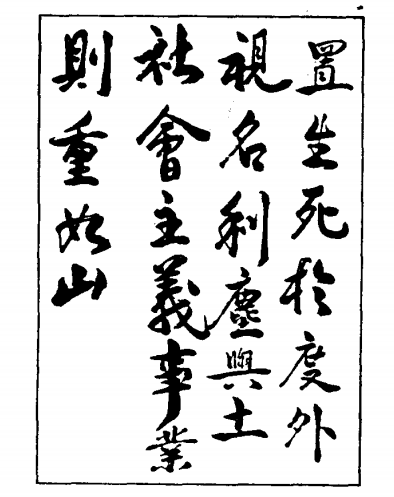 置生死於度外
視名利塵與土
社會主義事業
則重如山